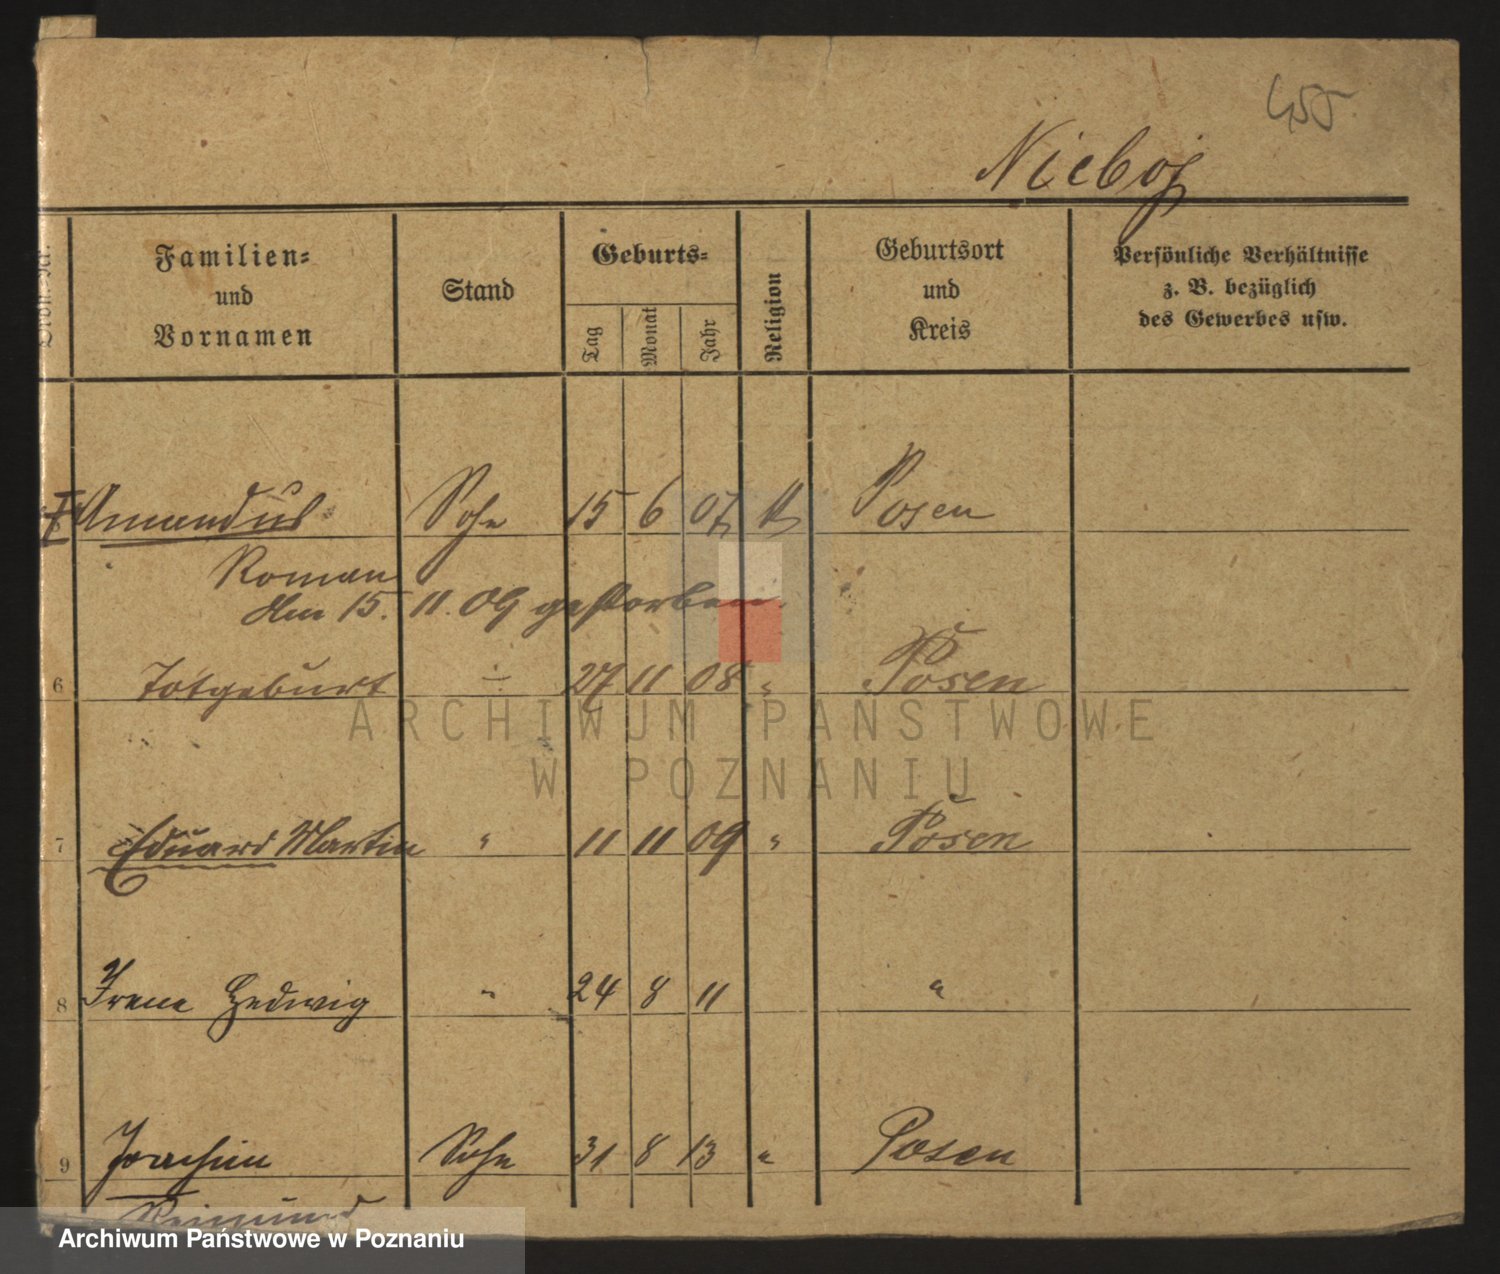 455
Nieboj
Ordn.-Nr.
Familien=
und
Vornamen
Stand
Geburts=
Tag
Monat
Jahr
Religion
Geburtsort
und
Kreis
Persönliche Verhältnisse
z. B. bezüglich
des Gewerbes usw.
Amandus Sohn 15 6 07 Posen
Roman
Am 15. 11. 09 gestorben.
6 Totgeburt ÷ 27 11 08 " Posen
ARCHIWUM PAŃSTWOWE
W POZNANIU
7 Eduard Martin " 11 11 09 " Posen
8 Irene Hedwig " 24 8 11 "
9 Joachim Sohn 31 8 13 " Posen
Reimund
Archiwum Państwowe w Poznaniu